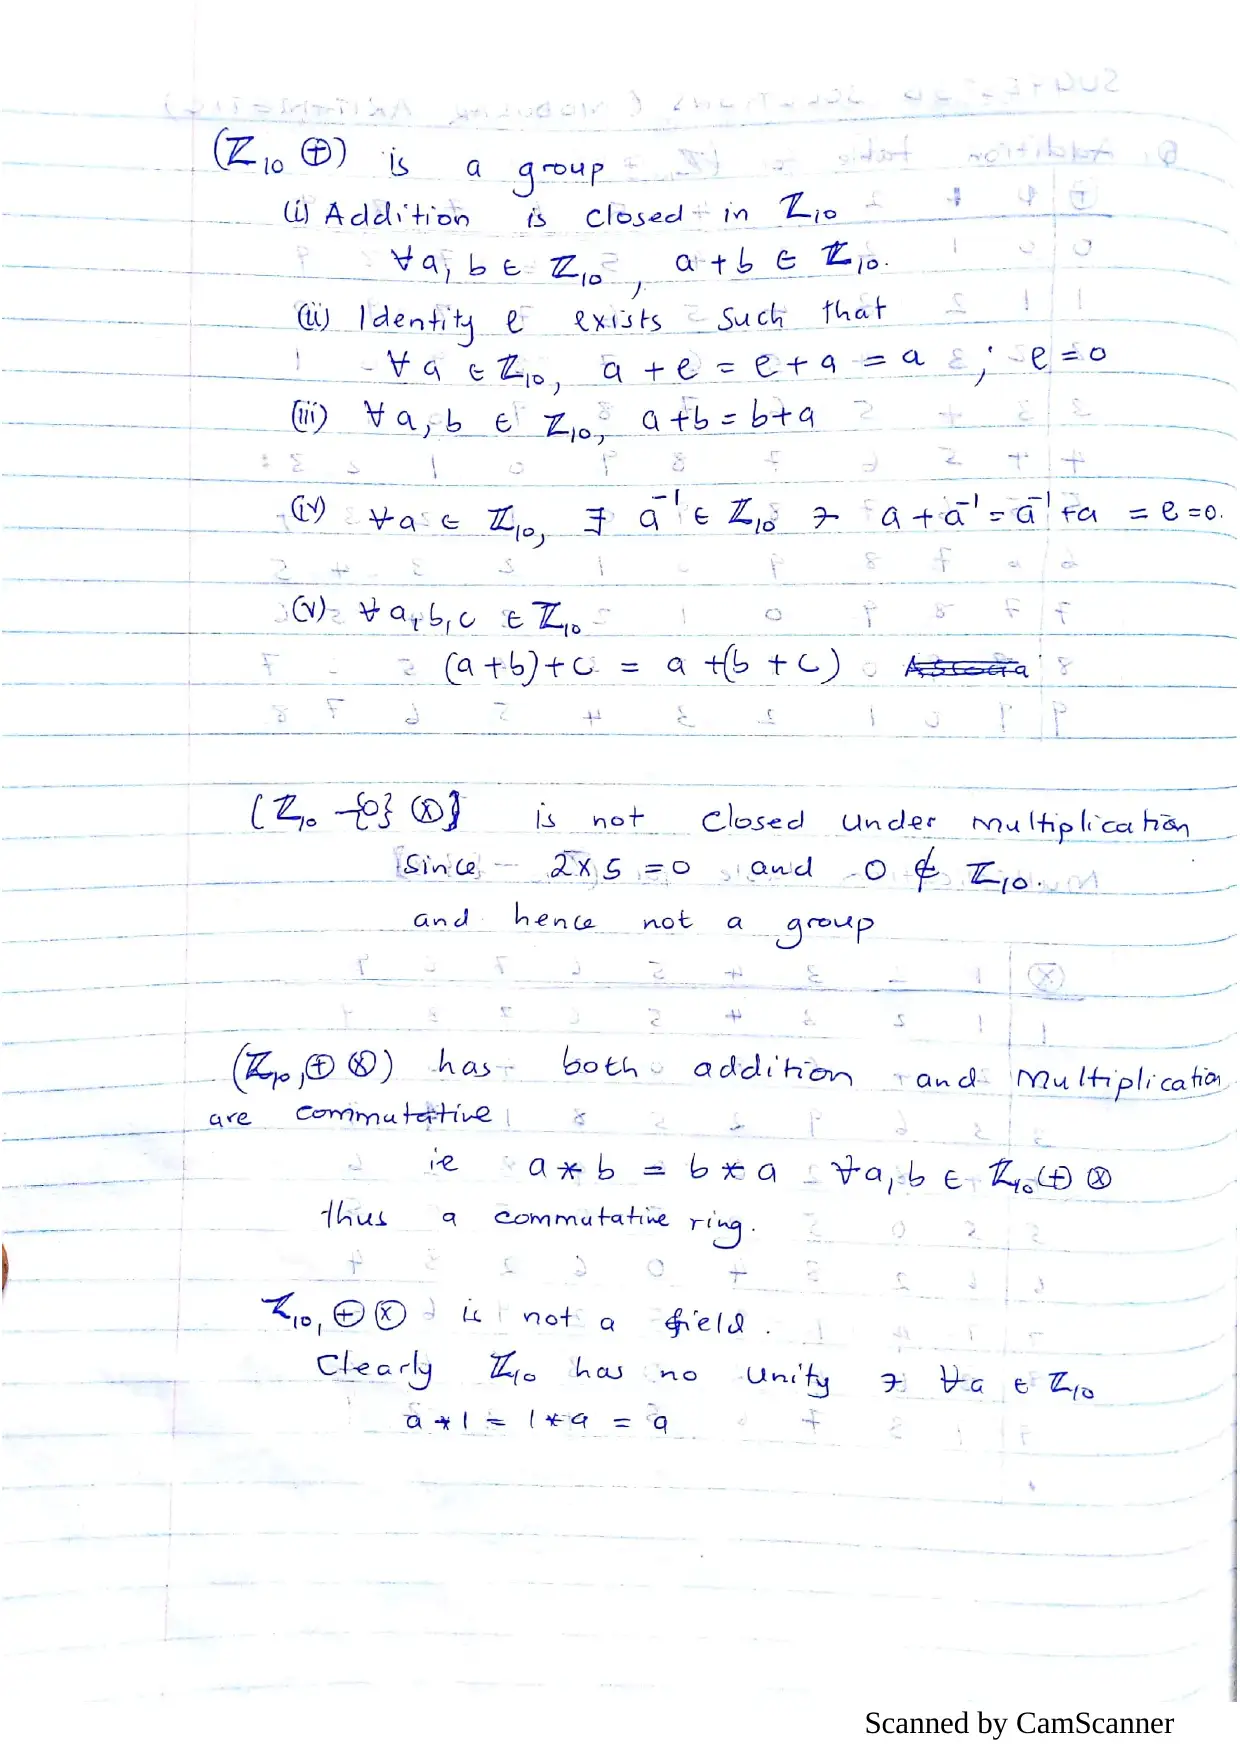 (ℤ₁₀ ⊕) is a group
(i) Addition is closed in ℤ₁₀
∀a, b ∈ ℤ₁₀, a + b ∈ ℤ₁₀.
(ii) Identity e exists such that
∀ a ∈ ℤ₁₀, a + e = e + a = a ; e = 0
(iii) ∀ a, b ∈ ℤ₁₀, a + b = b + a
(iv) ∀a ∈ ℤ₁₀, ∃ a⁻¹ ∈ ℤ₁₀ ∋ a + a⁻¹ = a⁻¹ + a = e = 0.
(v) ∀ a, b, c ∈ ℤ₁₀
(a + b) + c = a + (b + c)
(ℤ₁₀ -{0} ⊗) is not closed under multiplication
since 2 x 5 = 0 and 0 ∉ ℤ₁₀.
and hence not a group
(ℤ₁₀, ⊕ ⊗) has both addition and Multiplication
are commutative
ie a * b = b * a ∀a, b ∈ ℤ₁₀ ⊕ ⊗
thus a commutative ring.
ℤ₁₀, ⊕ ⊗ is not a field.
Clearly ℤ₁₀ has no unity ∋ ∀a ∈ ℤ₁₀
a * 1 = 1 * a = a
Scanned by CamScanner